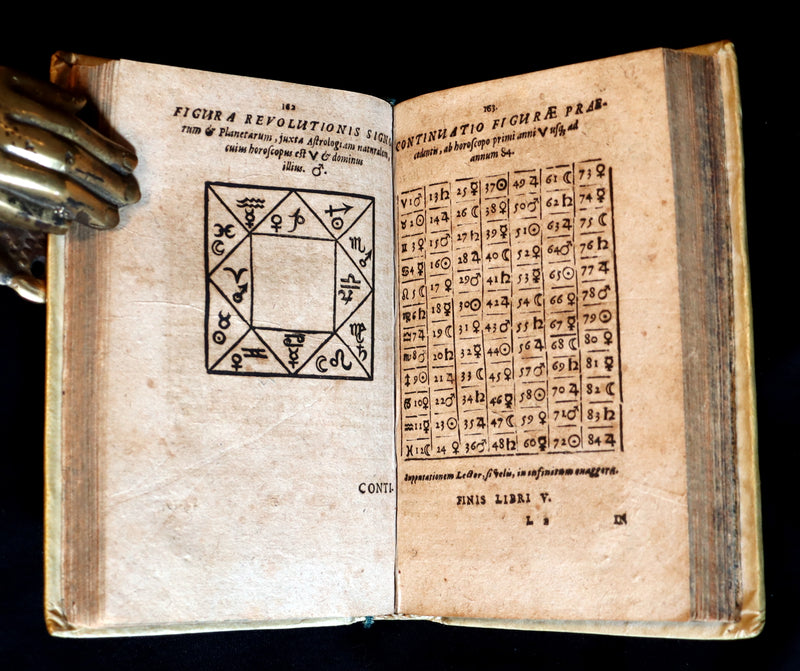 162
FIGURA REVOLUTIONIS SIGNO
rum & Planetarum, juxta Astrologiam naturalem,
cuius horoscopus est ♈ & dominus
illius. ♂.
♒ ☿ ♑ ♀ ♐ ☉
♓ ☾ ♏ ♂
♈ ♂ ♎ ♃
♉ ☉ ♍ ♄
♊ ♀ ♋ ☿ ♌ ☾
CONTI-
163.
CONTINUATIO FIGURÆ PRAE-
cedentis, ab horoscopo primi anni ♈ usq, ad
annum 84.
♈ 1♂ 13♄ 25☿ 37☉ 49♃ 61☾ 73♀
♉ 2☉ 14♃ 26☾ 38♀ 50♂ 62♄ 74☿
♊ 3♀ 15♂ 27♄ 39☿ 51☉ 63♃ 75☾
♋ 4☿ 16☉ 28♃ 40☾ 52♀ 64♂ 76♄
♌ 5☾ 17♀ 29♂ 41♄ 53☿ 65☉ 77♃
♍ 6♄ 18☿ 30☉ 42♃ 54☾ 66♀ 78♂
♎ 7♃ 19☾ 31♀ 43♂ 55♄ 67☿ 79☉
♏ 8♂ 20♄ 32☿ 44☉ 56♃ 68☾ 80♀
♐ 9☉ 21♃ 33☾ 45♀ 57♂ 69♄ 81☿
♑ 10♀ 22♂ 34♄ 46☿ 58☉ 70♃ 82☾
♒ 11☿ 23☉ 35♃ 47☾ 59♀ 71♂ 83♄
♓ 12☾ 24♀ 36♂ 48♄ 60☿ 72☉ 84♃
supputationem Lector, si velis, in infinitum exaggera.
FINIS LIBRI V.
L 2 IN